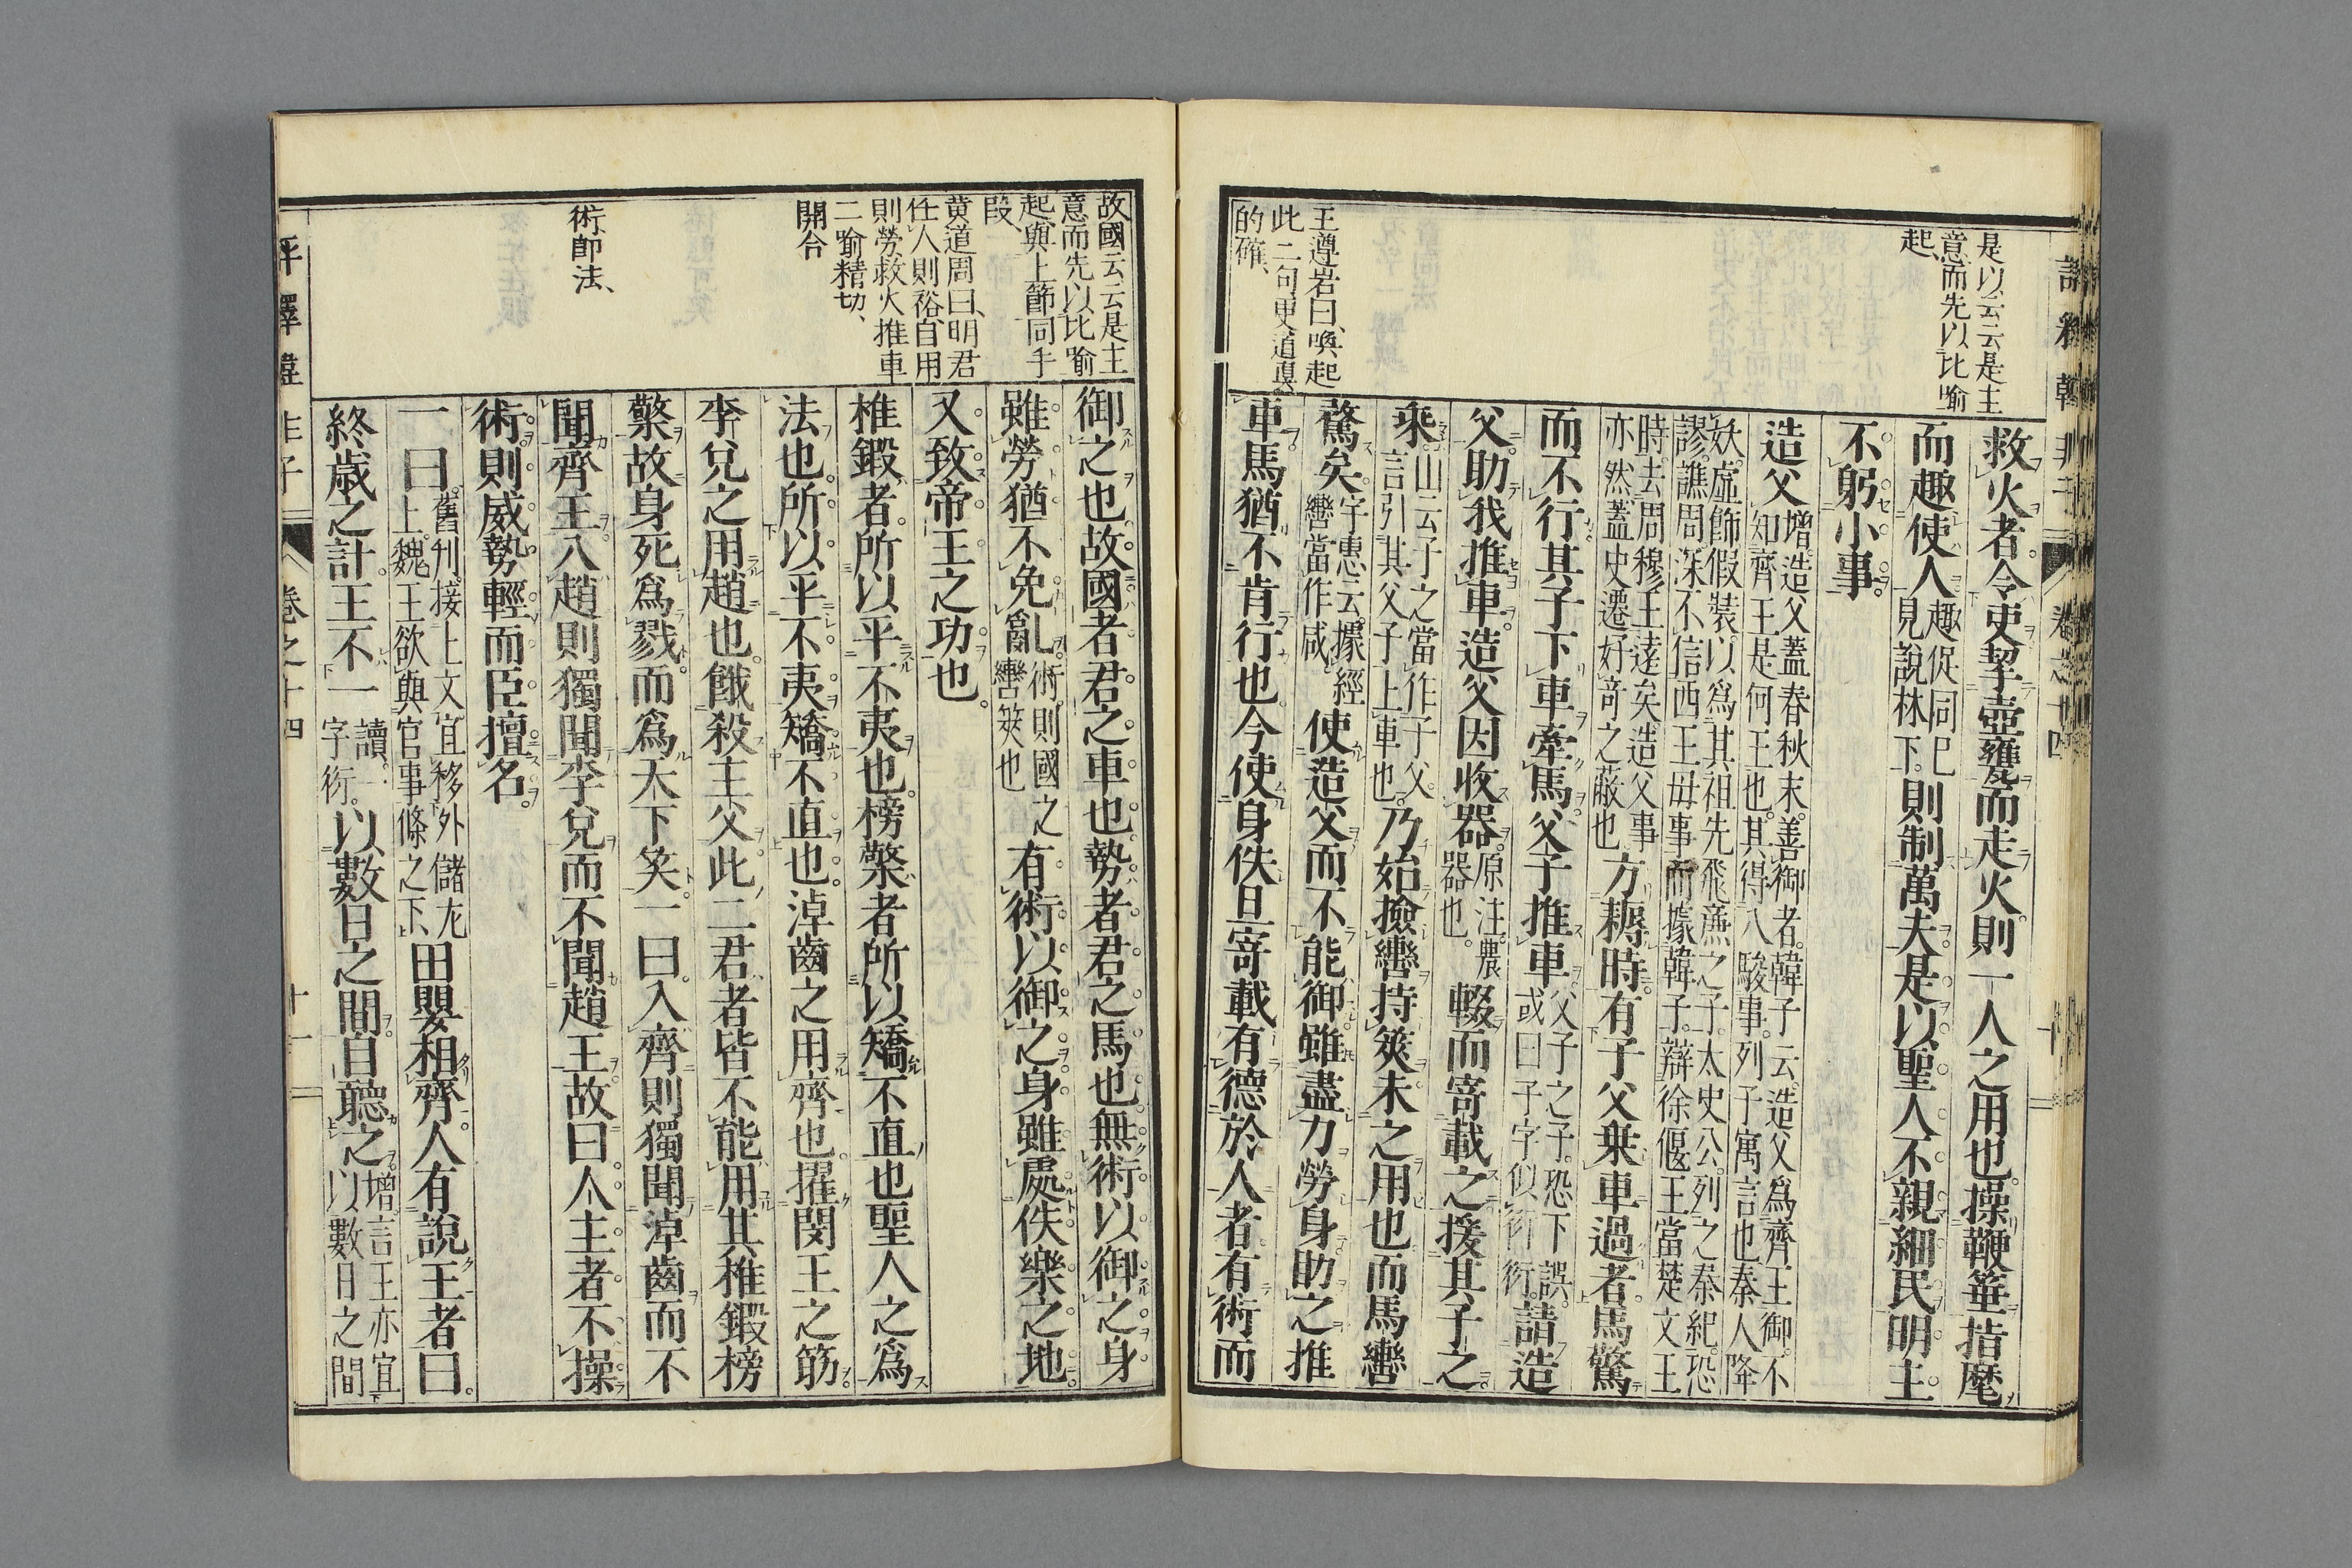 是以云云是主
意而先以比喻
起、
王遵岩曰、喚起
此二句、更道真
的確、
救火者。令吏挈壺甕而走火。則一人之用也。操鞭箠指麾
而趣使人趣促同已
見說林下。則制萬夫。是以聖人不親細民。明主
不躬小事。
造父增。造父蓋春秋末。善御者。韓子云。造父爲齊王御。不
知齊王是何王也。其得八駿事。列子寓言也。秦人降
妖。虛飾假裝。以爲其祖先飛廉之子。太史公。列之秦紀。恐
謬。譙周深不信西王毋事而據韓子。辯徐偃王當楚文王
時去周穆王遠矣造父事
亦然蓋史遷好奇之蔽也方耨。時有子父乗車過者。馬驚
而不行。其子下車牽馬。父子推車。父子之子。恐下誤。
或曰子字似衍。請造
父。助我推車。造父因收器。原注。農
器也。輟而寄載之。援其子之
乘。山云子之當作子父。
言引其父子上車也乃始撿轡持筴未之用也。而馬轡
驚矣。字惠云。據經
轡當作咸使造父而不能御。雖盡力勞身助之推
車。馬猶不肯行也。今使身佚且寄載有德於人者。有術而
故國云云是主
意而先以比喻
起、與上節同手
段、
黄道周曰、明君
任人則裕、自用
則勞、救火推車
二喻精切、
開合
術、卽法、
御之也。故國者君之車也。勢者君之馬也。無術以御之。身
雖勞猶不免亂。術。則國之
轡筴也有術以御之。身雖處佚樂之地。
又致帝王之功也。
椎鍛者。所以平不夷也。榜檠者所以矯不直也聖人之爲
法也。所以平不夷矯不直也。淖齒之用齊也。擢閔王之筋。
李兌之用趙也。餓殺主父。此二君者皆不能用其椎鍛榜
檠。故身死爲戮。而爲天下笑。一曰。入齊則獨聞淖齒而不
聞齊王。入趙則獨聞李兌而不聞趙王。故曰人主者不操
術。則威勢輕而臣擅名。
一曰。舊刊。接上文。宜移外儲尤
上。魏王欲與官事條之下、田嬰相齊。人有說王者曰。
終歲之計。王不一讀。一
字衍。以數日之間。自聽之。增。言王亦宜
以數日之間
評釋韓非子
卷之十四
十一